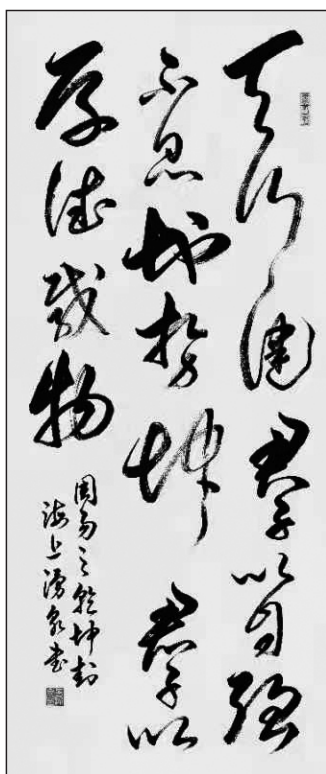 天行健君子以自强
不息地势坤君子以
厚德载物
周易之乾坤卦
海上涌泉书